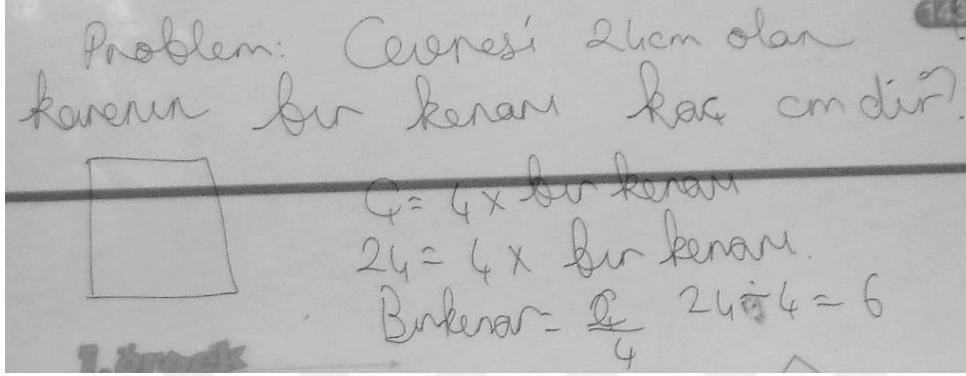 143
Problem: Çevresi 24cm olan
karenin bir kenarı kaç cm dir?
Ç = 4 x bir kenarı
24 = 4 x bir kenarı.
Birkenar = Ç/4 24÷4 = 6
1. örnek